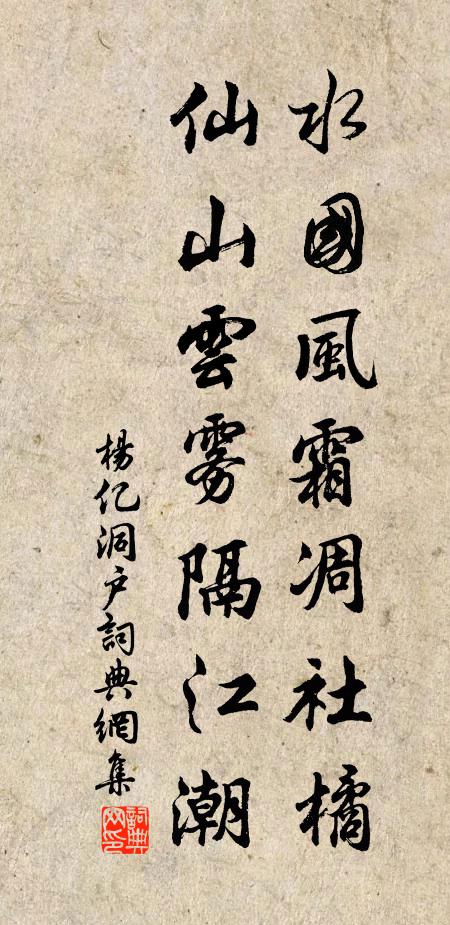 水國風霜凋社橘
仙山雲雾隔江潮
楊亿洞户詞典網集
詞典
网印